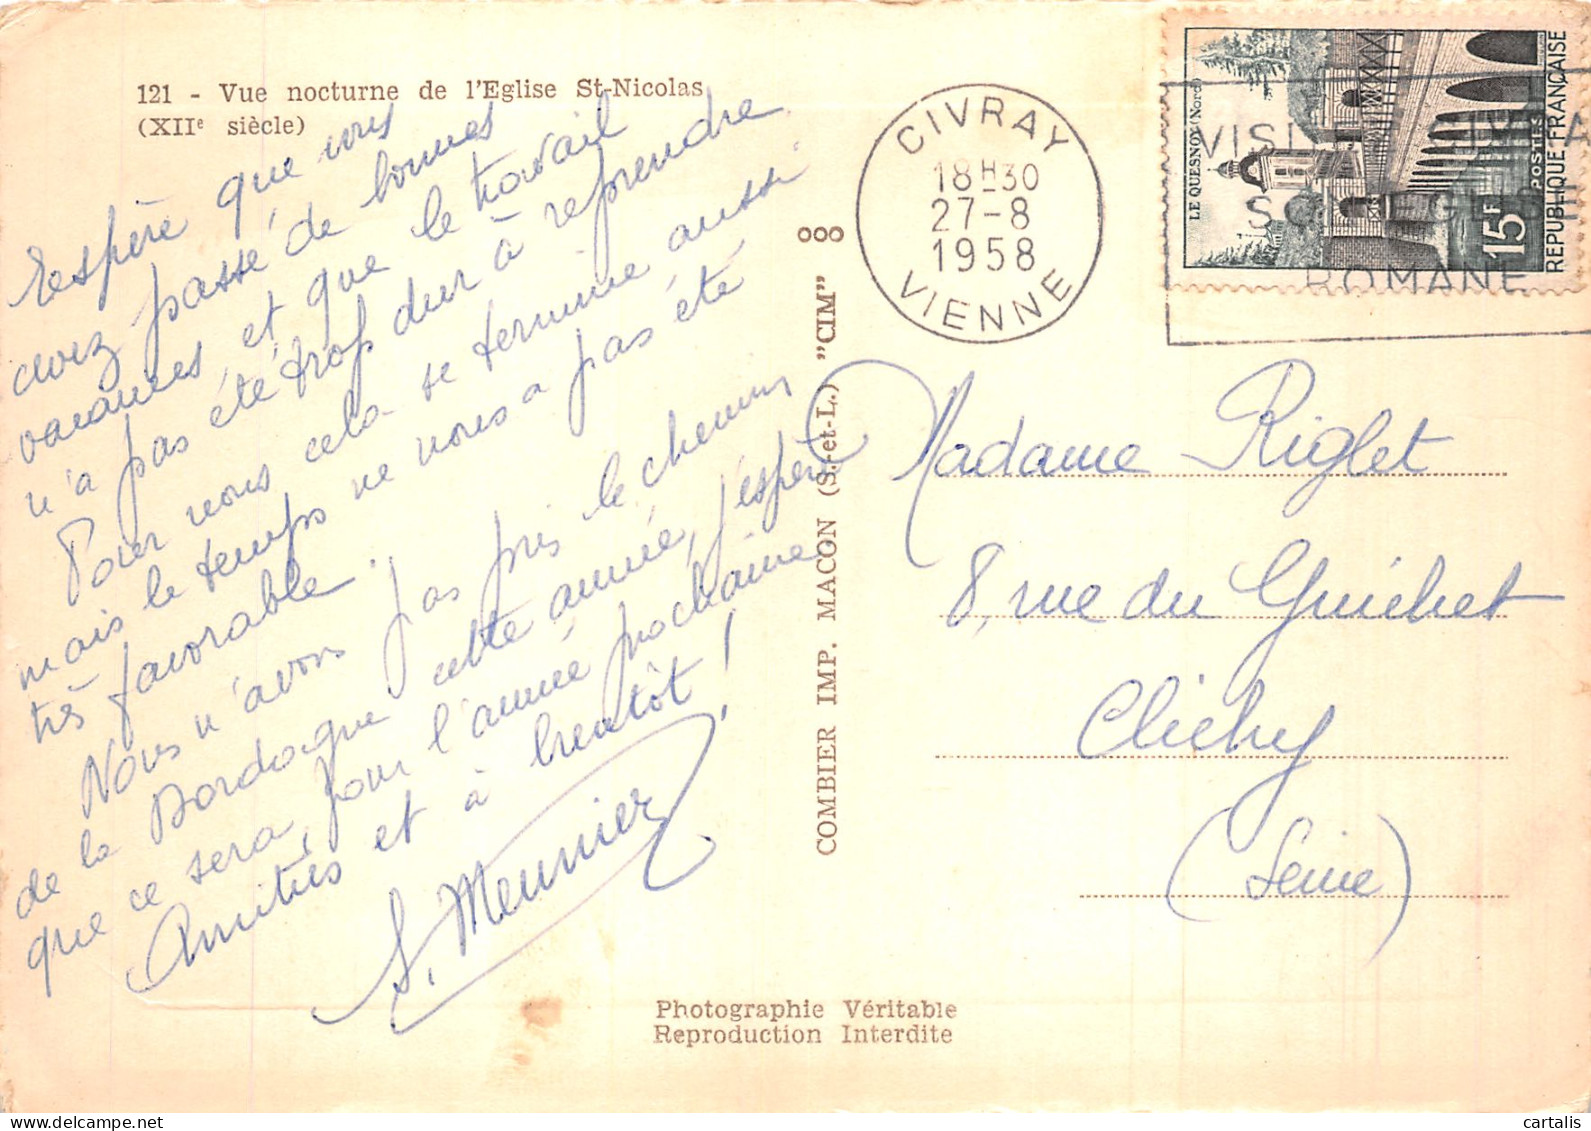 121 - Vue nocturne de l'Eglise St-Nicolas
(XIIe siècle)
Espère que vous
avez passé de bonnes
vacances et que le travail
n'a pas été trop dur à reprendre
Pour nous cela se termine aussi
mais le temps ne nous a pas été
très favorable.
Nous n'avons pas pris le chemin
de la Dordogne cette année, j'espère
que ce sera pour l'année prochaine.
Amitiés et à bientôt !
S. Meunier
COMBIER IMP. MACON (S.-et-L.) "CIM"
CIVRAY
18H30
27-8
1958
VIENNE
VISI
ROMANE
LE QUESNOY (Nord)
15F
POSTES
REPUBLIQUE FRANÇAISE
Madame Riglet
8, rue du Guichet
Clichy
(Seine)
Photographie Véritable
Reproduction Interdite
cartalis